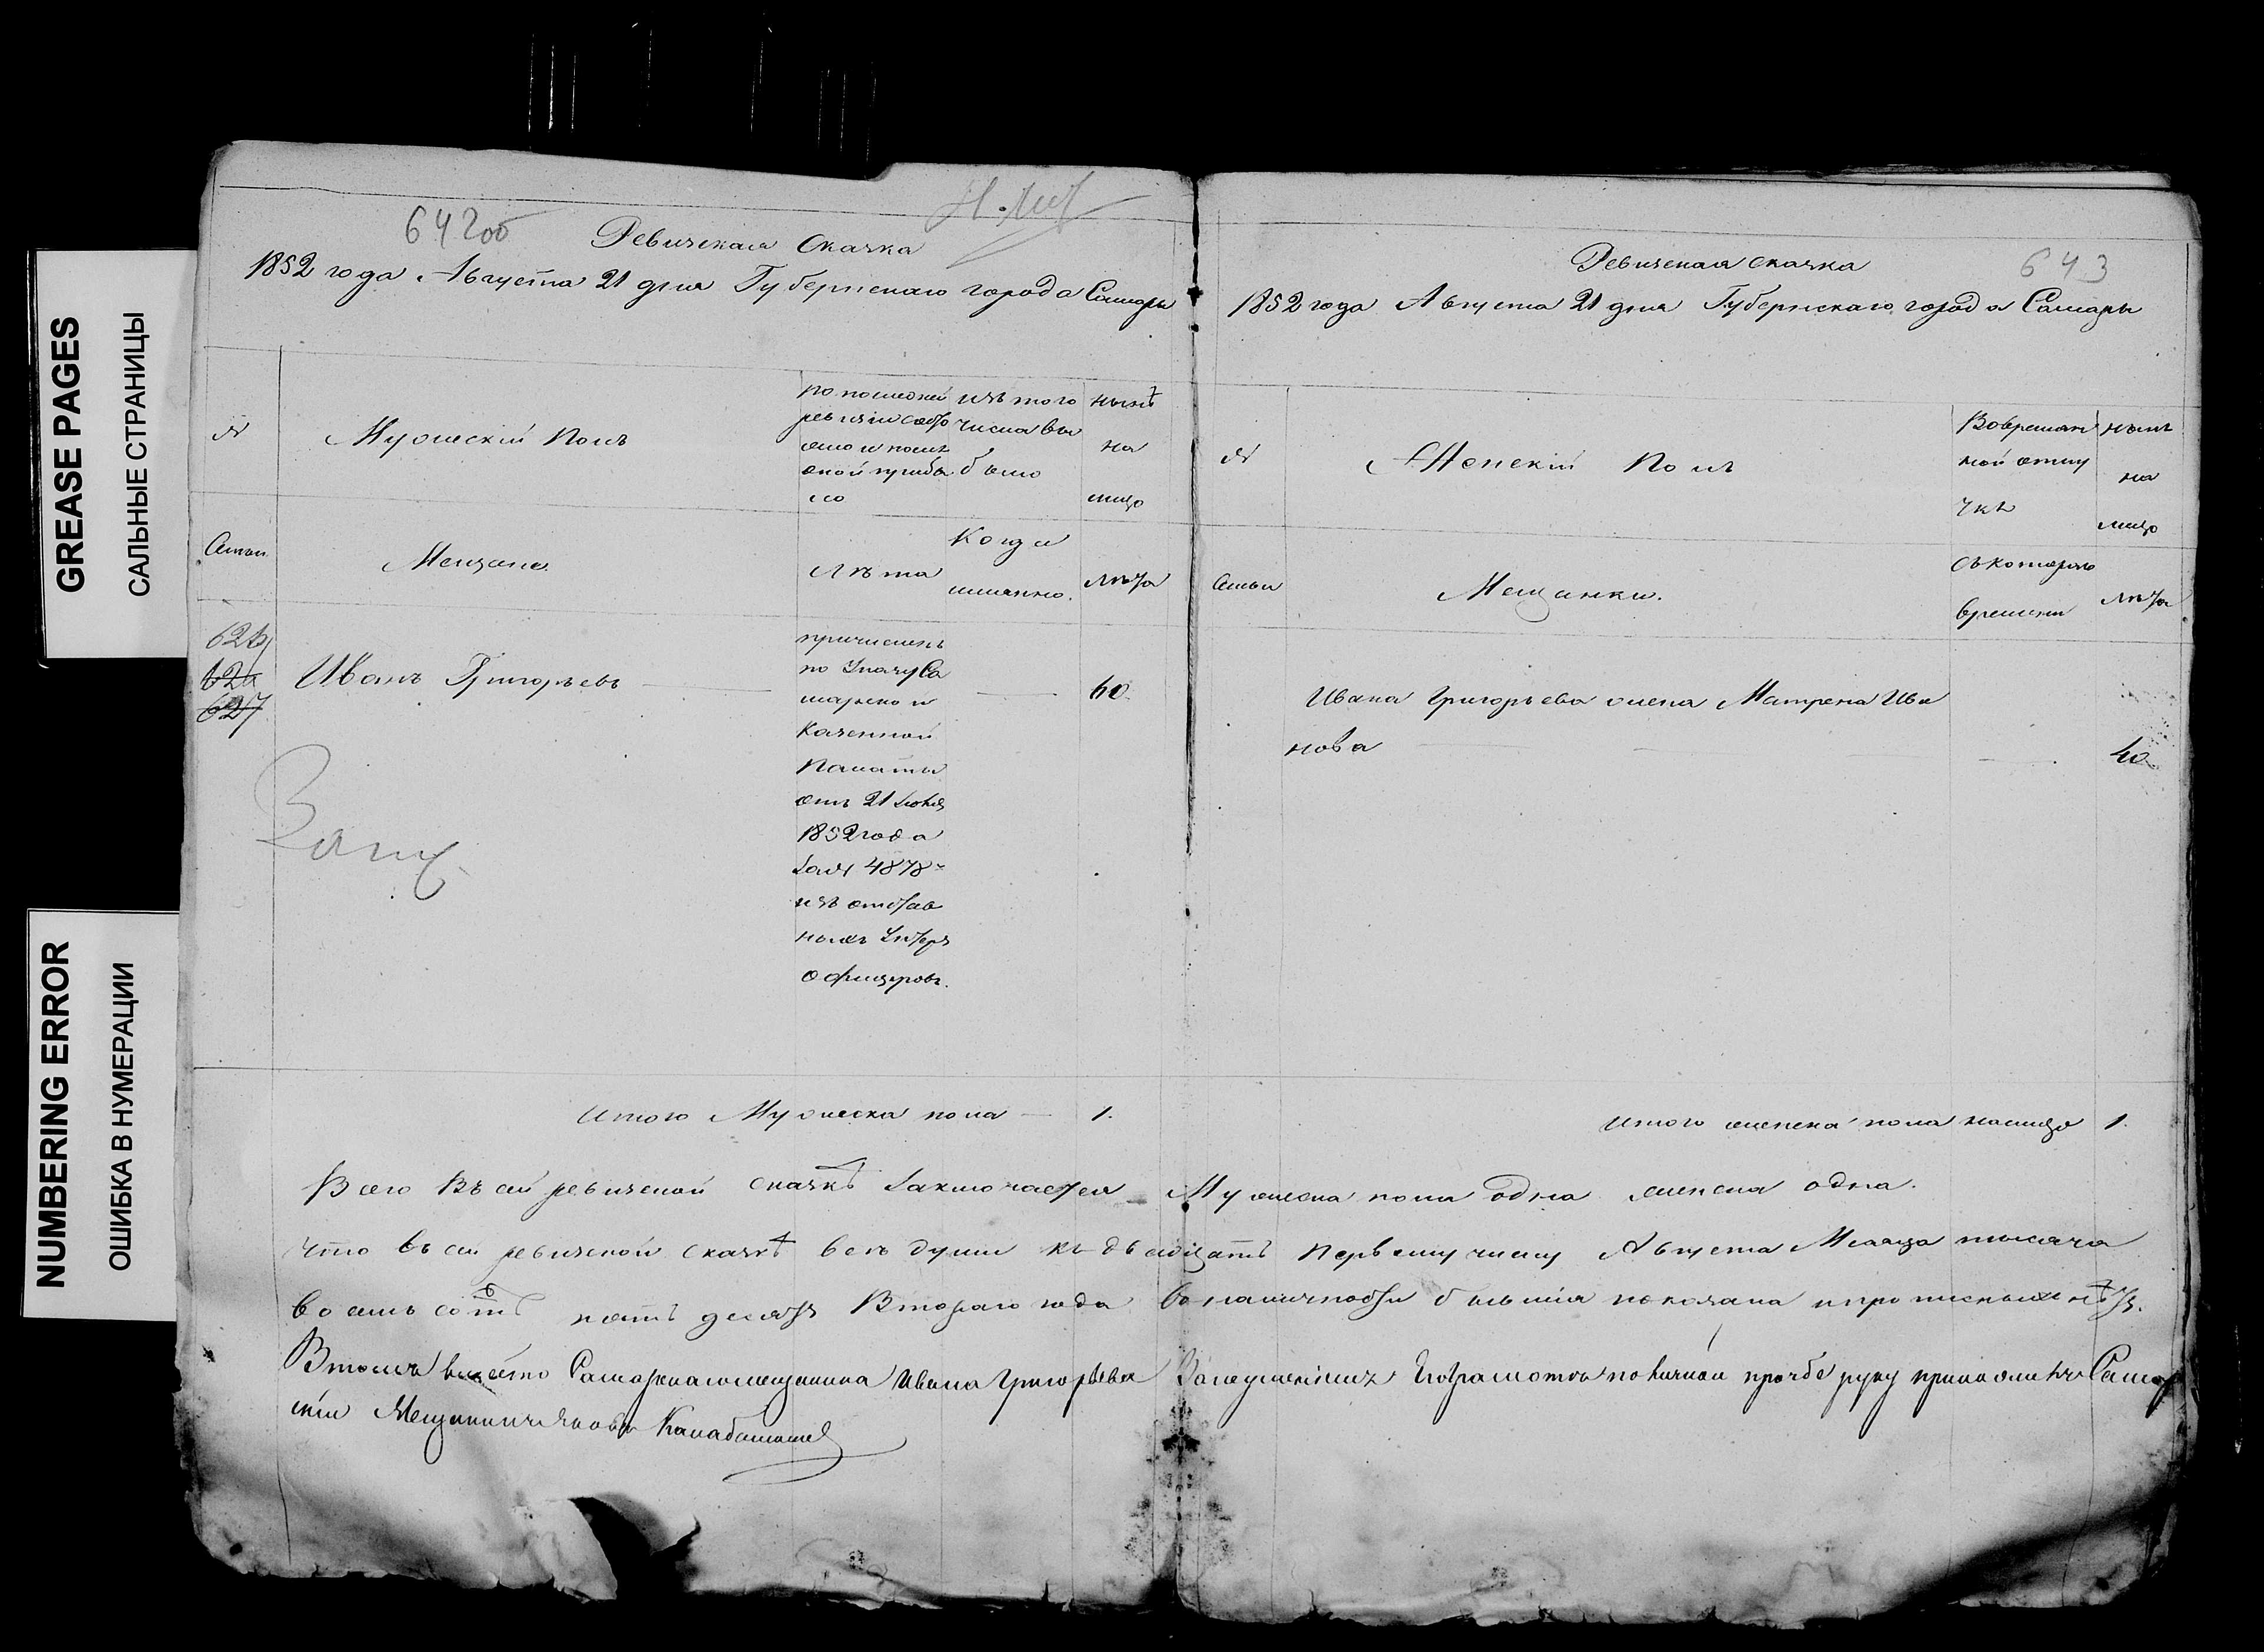 GREASE PAGES
САЛЬНЫЕ СТРАНИЦЫ
NUMBERING ERROR
ОШИБКА В НУМЕРАЦИИ
642об
Ревизская Сказка
1852 года Августа 21 дня Губернскаго города Самары
№
Мужескій Полъ
по последней
ревизіи состо
яло и после
оной прибы
ло
изъ того
числа вы
было
ныне
на
лицо
Семьи
Мещане.
Лѣта
Когда
именно.
Лѣта
627
Иванъ Григорьевъ
60
причисленъ
по Указу Са
марской
Казенной
Палаты
отъ 21 Іюля
1852 года
за № 4878
изъ отстав
ныхъ Унтеръ
офицеровъ.
Итого Мужеска пола 1.
Ревизская сказка
643
1852 года Августа 21 дня Губернскаго города Самары
№
Женскій Полъ
Во времен
ной отлу
чкѣ
нынѣ
на
лицо
Семьи
Мещанки.
Съ котораго
времени
Лѣта
Ивана Григорьева жена Матрена Ива
нова
40
Итого женска пола налицо 1.
Всего Въ сей ревизской сказкѣ Заключается Мужеска пола одна женска одна.
Что въ сей ревизской сказкѣ всѣ души къ двадцать Первому числу Августа Месяца тысяча
восемь сотъ пять десятъ Втораго года въ наличности бывшія показана и прописныхъ нѣтъ.
Въ томъ вместо Самарскаго мещанина Ивана Григорьева руку приложилъ Самар
скій Мещанинъ